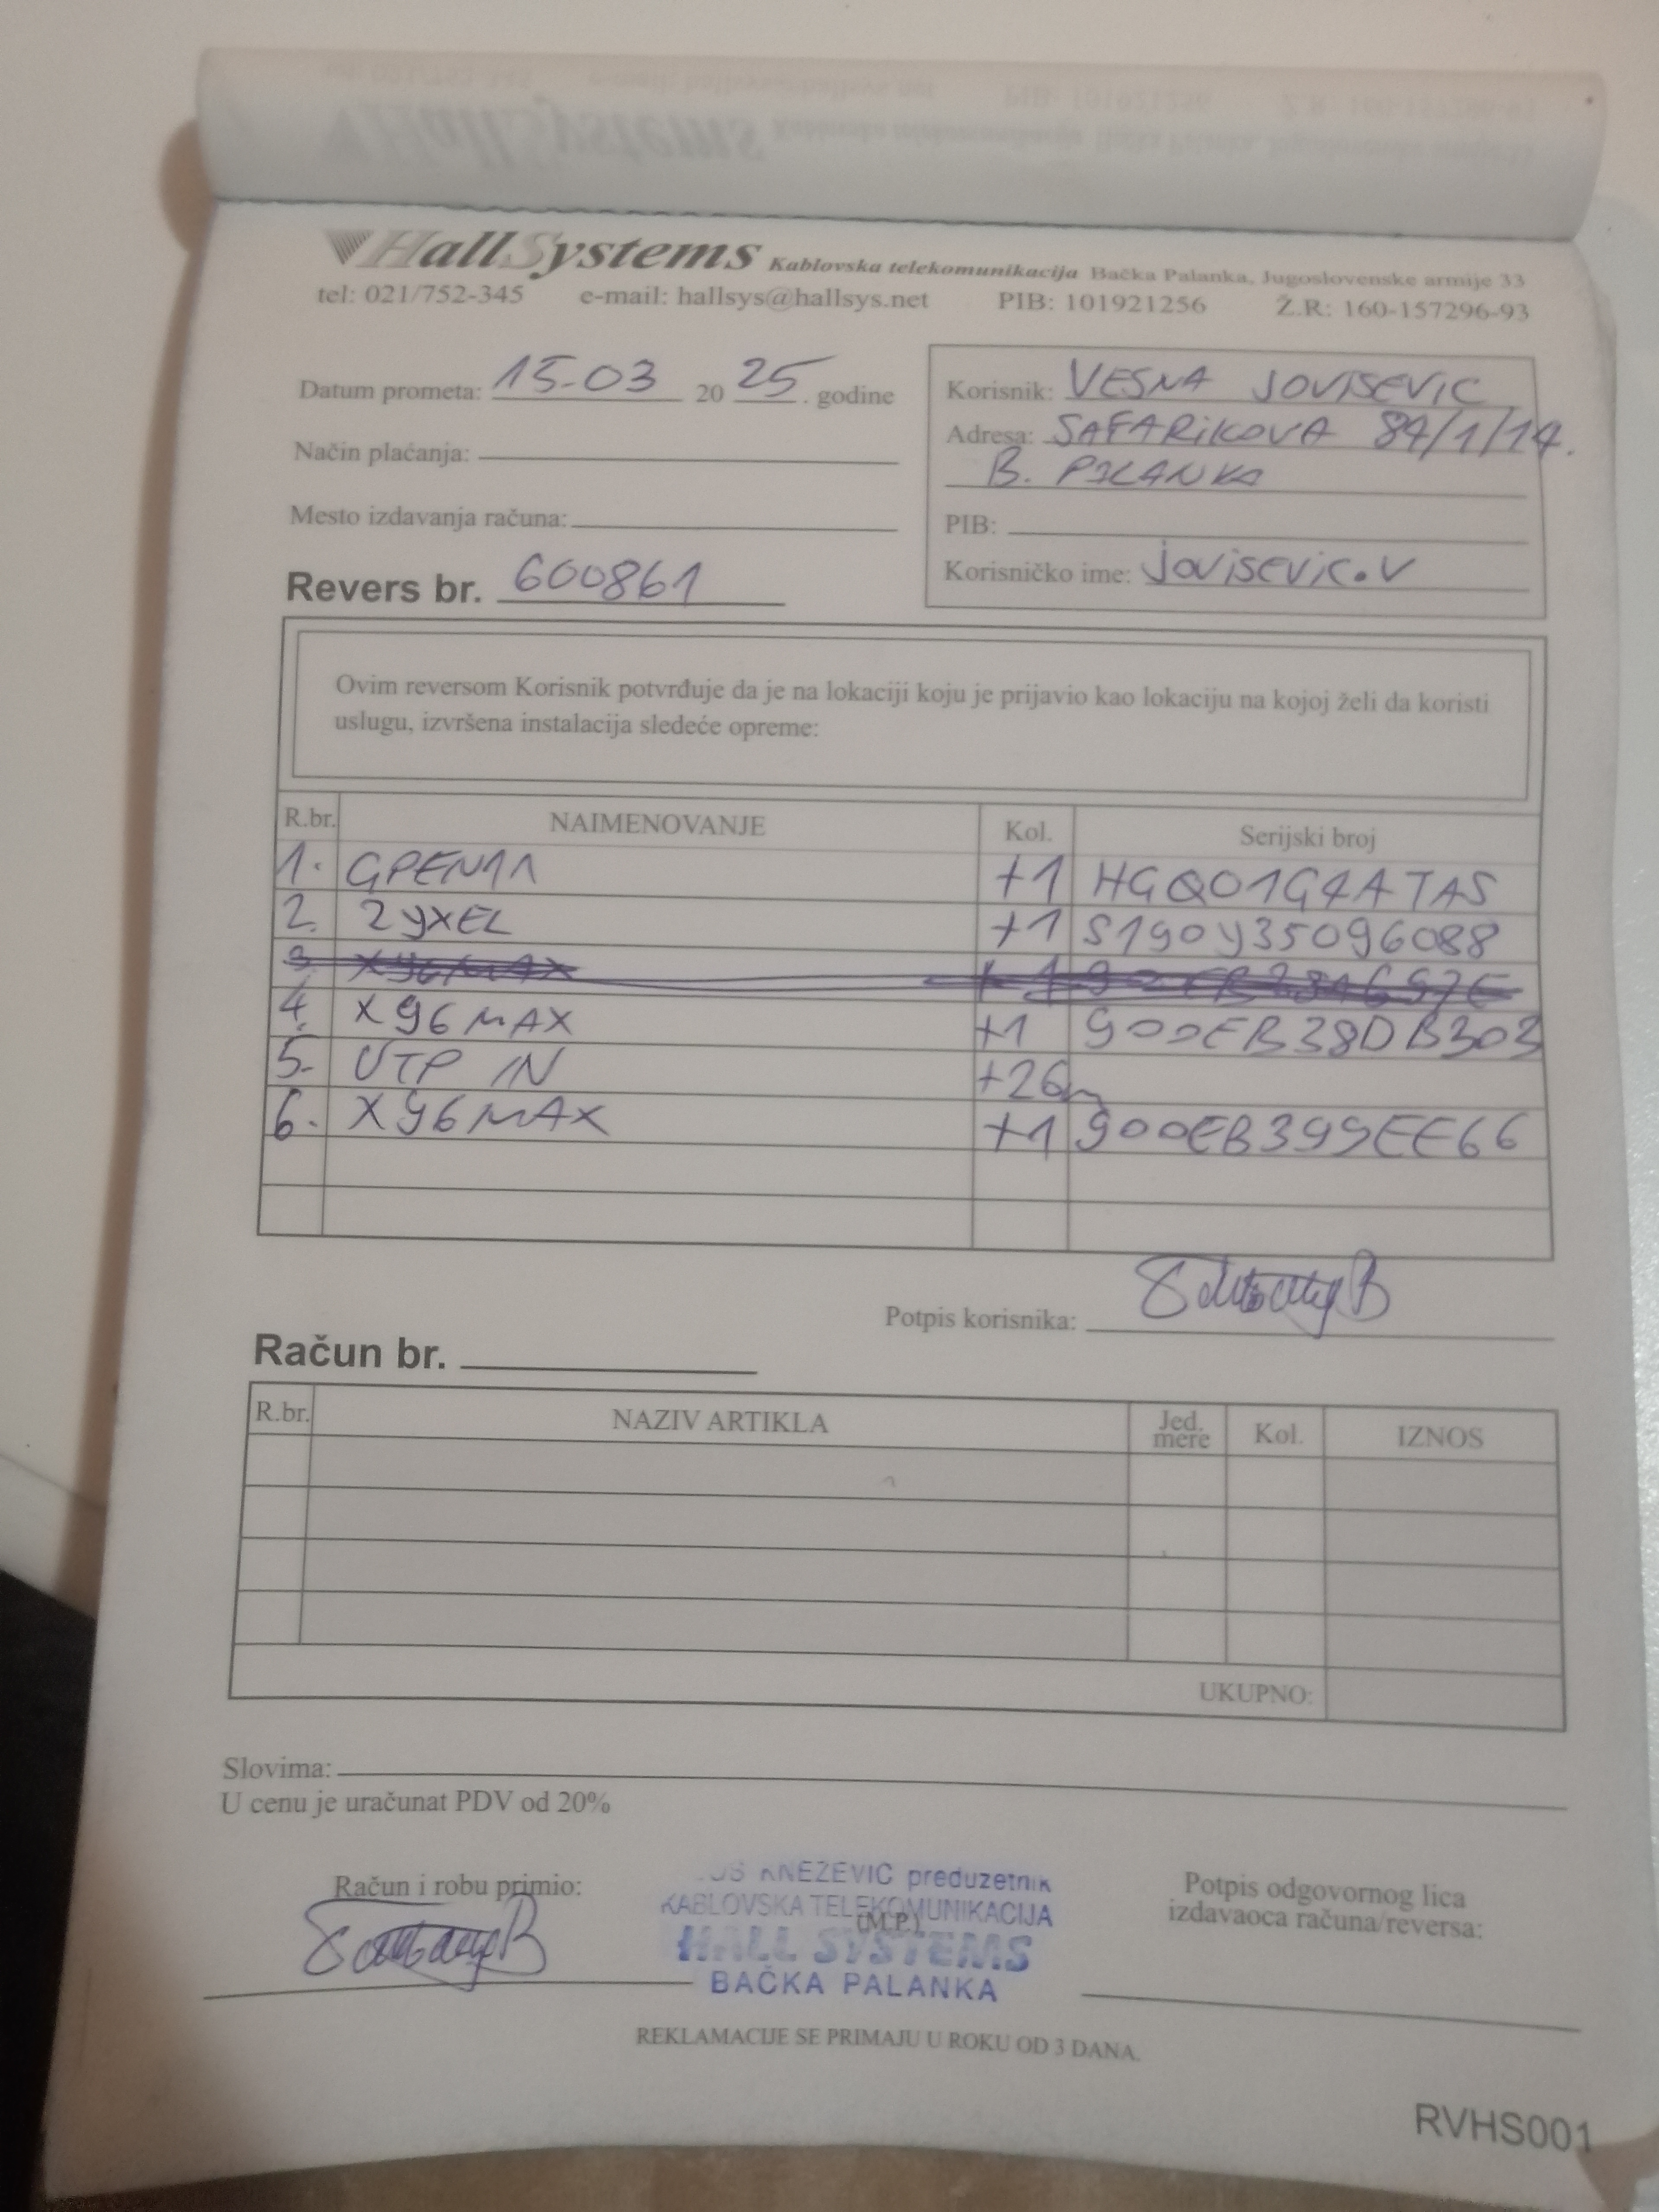 HallSystems Kablovska telekomunikacija Bačka Palanka, Jugoslovenske armije 33
tel: 021/752-345 e-mail: hallsys@hallsys.net PIB: 101921256 Ž.R: 160-157296-93
Datum prometa: 15-03 20 25. godine
Način plaćanja:
Mesto izdavanja računa:
Revers br. 600861
Korisnik: VESNA JOVISEVIC
Adresa: SAFARIKOVA 84/1/14.
B. PALANKA
PIB:
Korisničko ime: jovisevic.v
Ovim reversom Korisnik potvrđuje da je na lokaciji koju je prijavio kao lokaciju na kojoj želi da koristi
uslugu, izvršena instalacija sledeće opreme:
R.br. NAIMENOVANJE Kol. Serijski broj
1. GPEN11 +1 HGQ01G4ATAS
2. ZYXEL +1 S190Y35096088
3. X96MAX +1
4. X96MAX +1 900EB38DB303
5. UTP IN +26m
6. X96MAX +1 900EB399EE66
Potpis korisnika:
Račun br.
R.br. NAZIV ARTIKLA Jed. mere Kol. IZNOS
UKUPNO:
Slovima:
U cenu je uračunat PDV od 20%
Račun i robu primio:
KNEZEVIC preduzetnik
KABLOVSKA TELEKOMUNIKACIJA
(M.P.)
HALL SYSTEMS
BAČKA PALANKA
Potpis odgovornog lica
izdavaoca računa/reversa:
REKLAMACIJE SE PRIMAJU U ROKU OD 3 DANA.
RVHS001